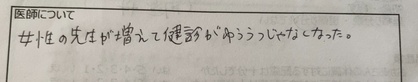 医師について
女性の先生が増えて健診がゆううつじゃなくなった。